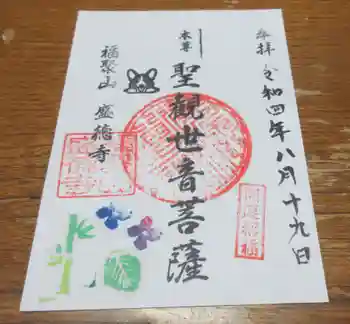 奉拝 令和四年八月十九日
本尊
聖観世音菩薩
福聚山 盛徳寺